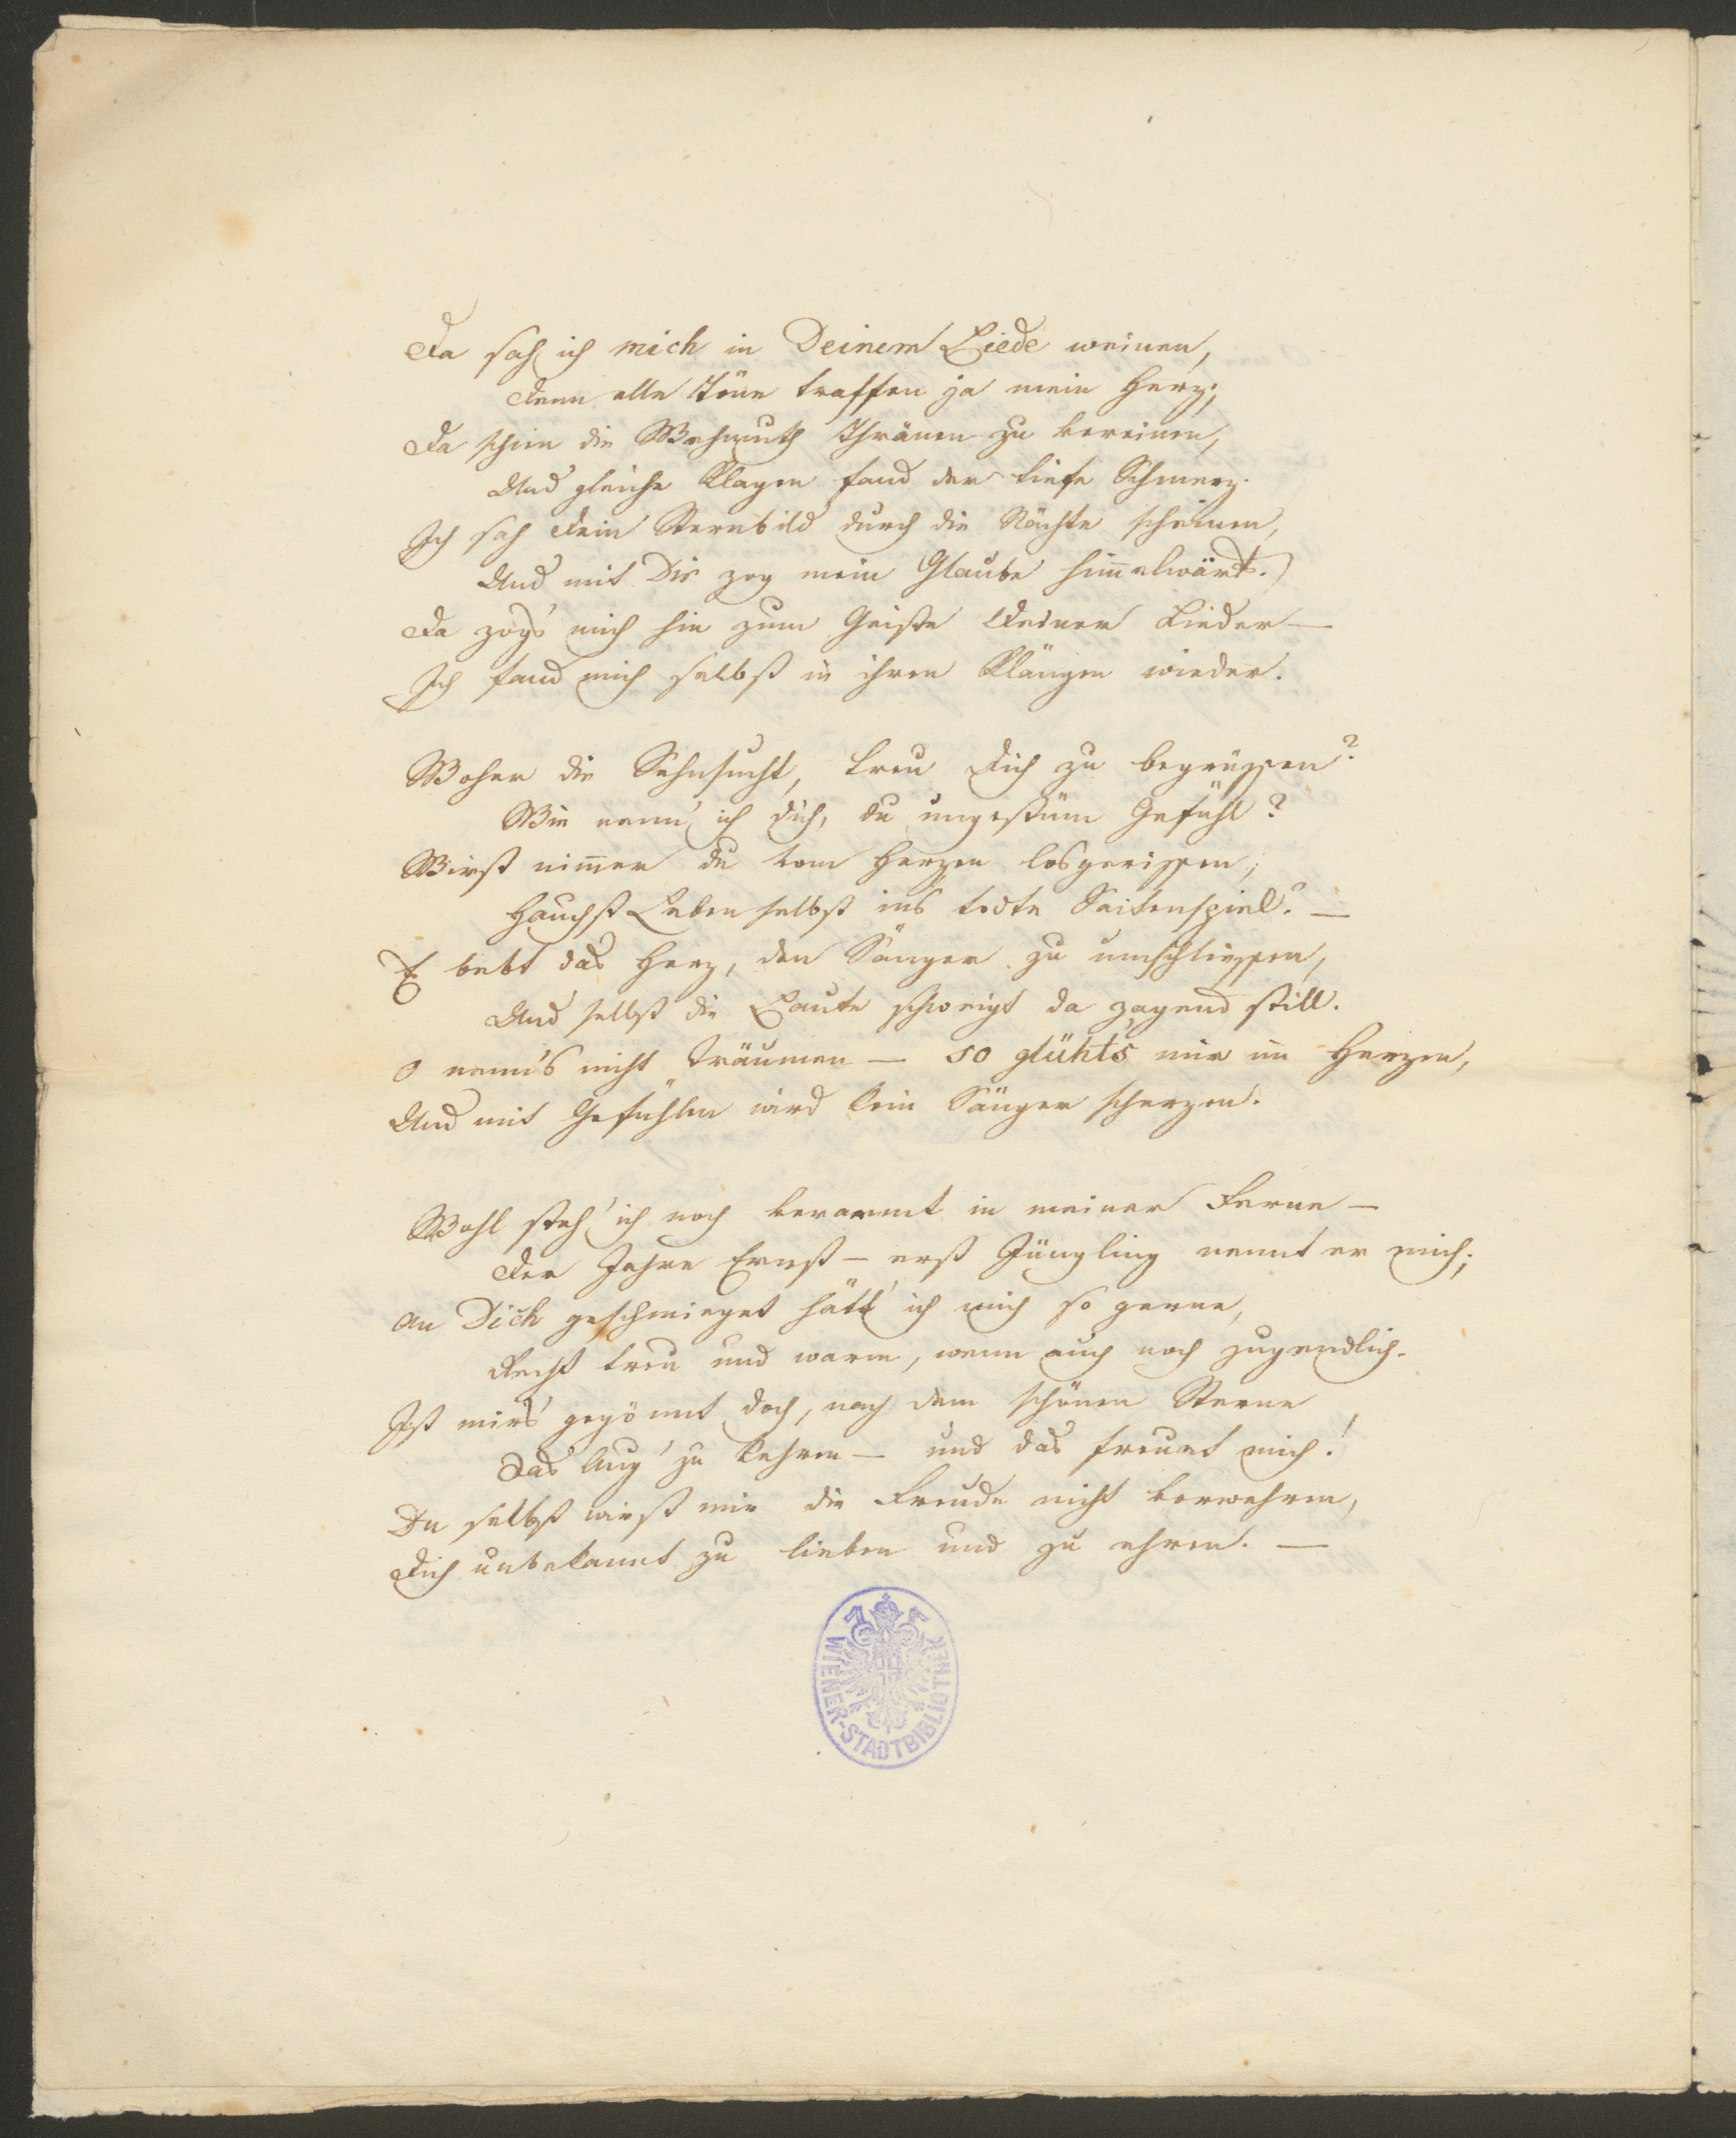 Da sah ich mich in Deinem Liede weinen,
Denn alle Töne traffen ja mein Herz;
Da schien die Wehmuth Thränen zu vereinen,
Und gleiche Klagen fand der tiefe Schmerz.
Ich sah Dein Sternbild durch die Nächte scheinen,
Und mit Dir zog mein Glaube him̅elwärts.
Da zog's mich hin zum Geiste Deiner Lieder —
Ich fand mich selbst in ihren Klängen wieder.
Woher die Sehnsucht, treu Dich zu begrüssen?
Wie nenn' ich dich, du ungestüm Gefühl?
Wirst nim̅er du vom Herzen losgerissen,
Hauchst Leben selbst ins todte Saitenspiel? —
Es bebt das Herz, den Sänger zu umschliessen,
Und selbst die Laute schweigt da zagend still.
O nenn's nicht Träumen — so glüht's mir im Herzen,
Und mit Gefühlen wird kein Sänger scherzen.
Wohl steh' ich noch verarmt in meiner Ferne —
Der Jahre Ernst — erst Jüngling nennt er mich;
An Dich geschmieget hätt' ich mich so gerne,
Recht treu und warm, wenn auch noch jugendlich.
Ist mirs' gegönnt doch, nach dem schönen Sterne
Das Aug' zu kehren — und das freuet mich!
Du selbst wirst mir die Freude nicht verwehren,
Dich unbekannt zu lieben und zu ehren. —
WIENER-STADTBIBLIOTHEK